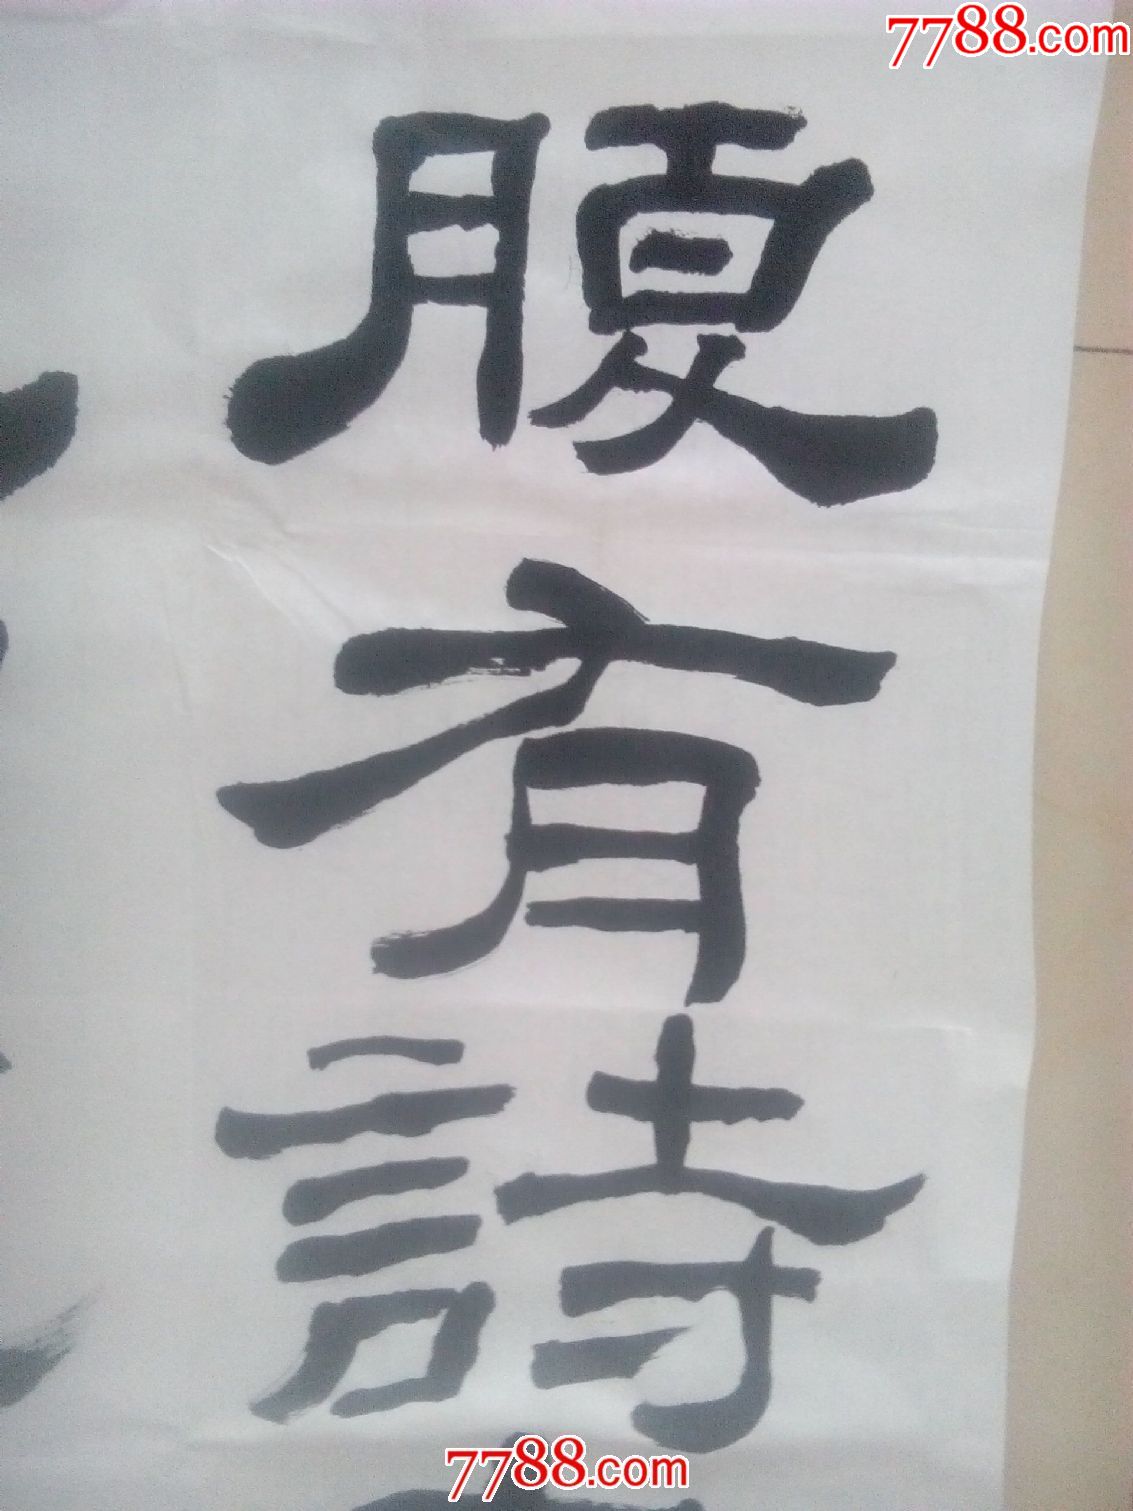 7788.com
腹有詩
7788.com